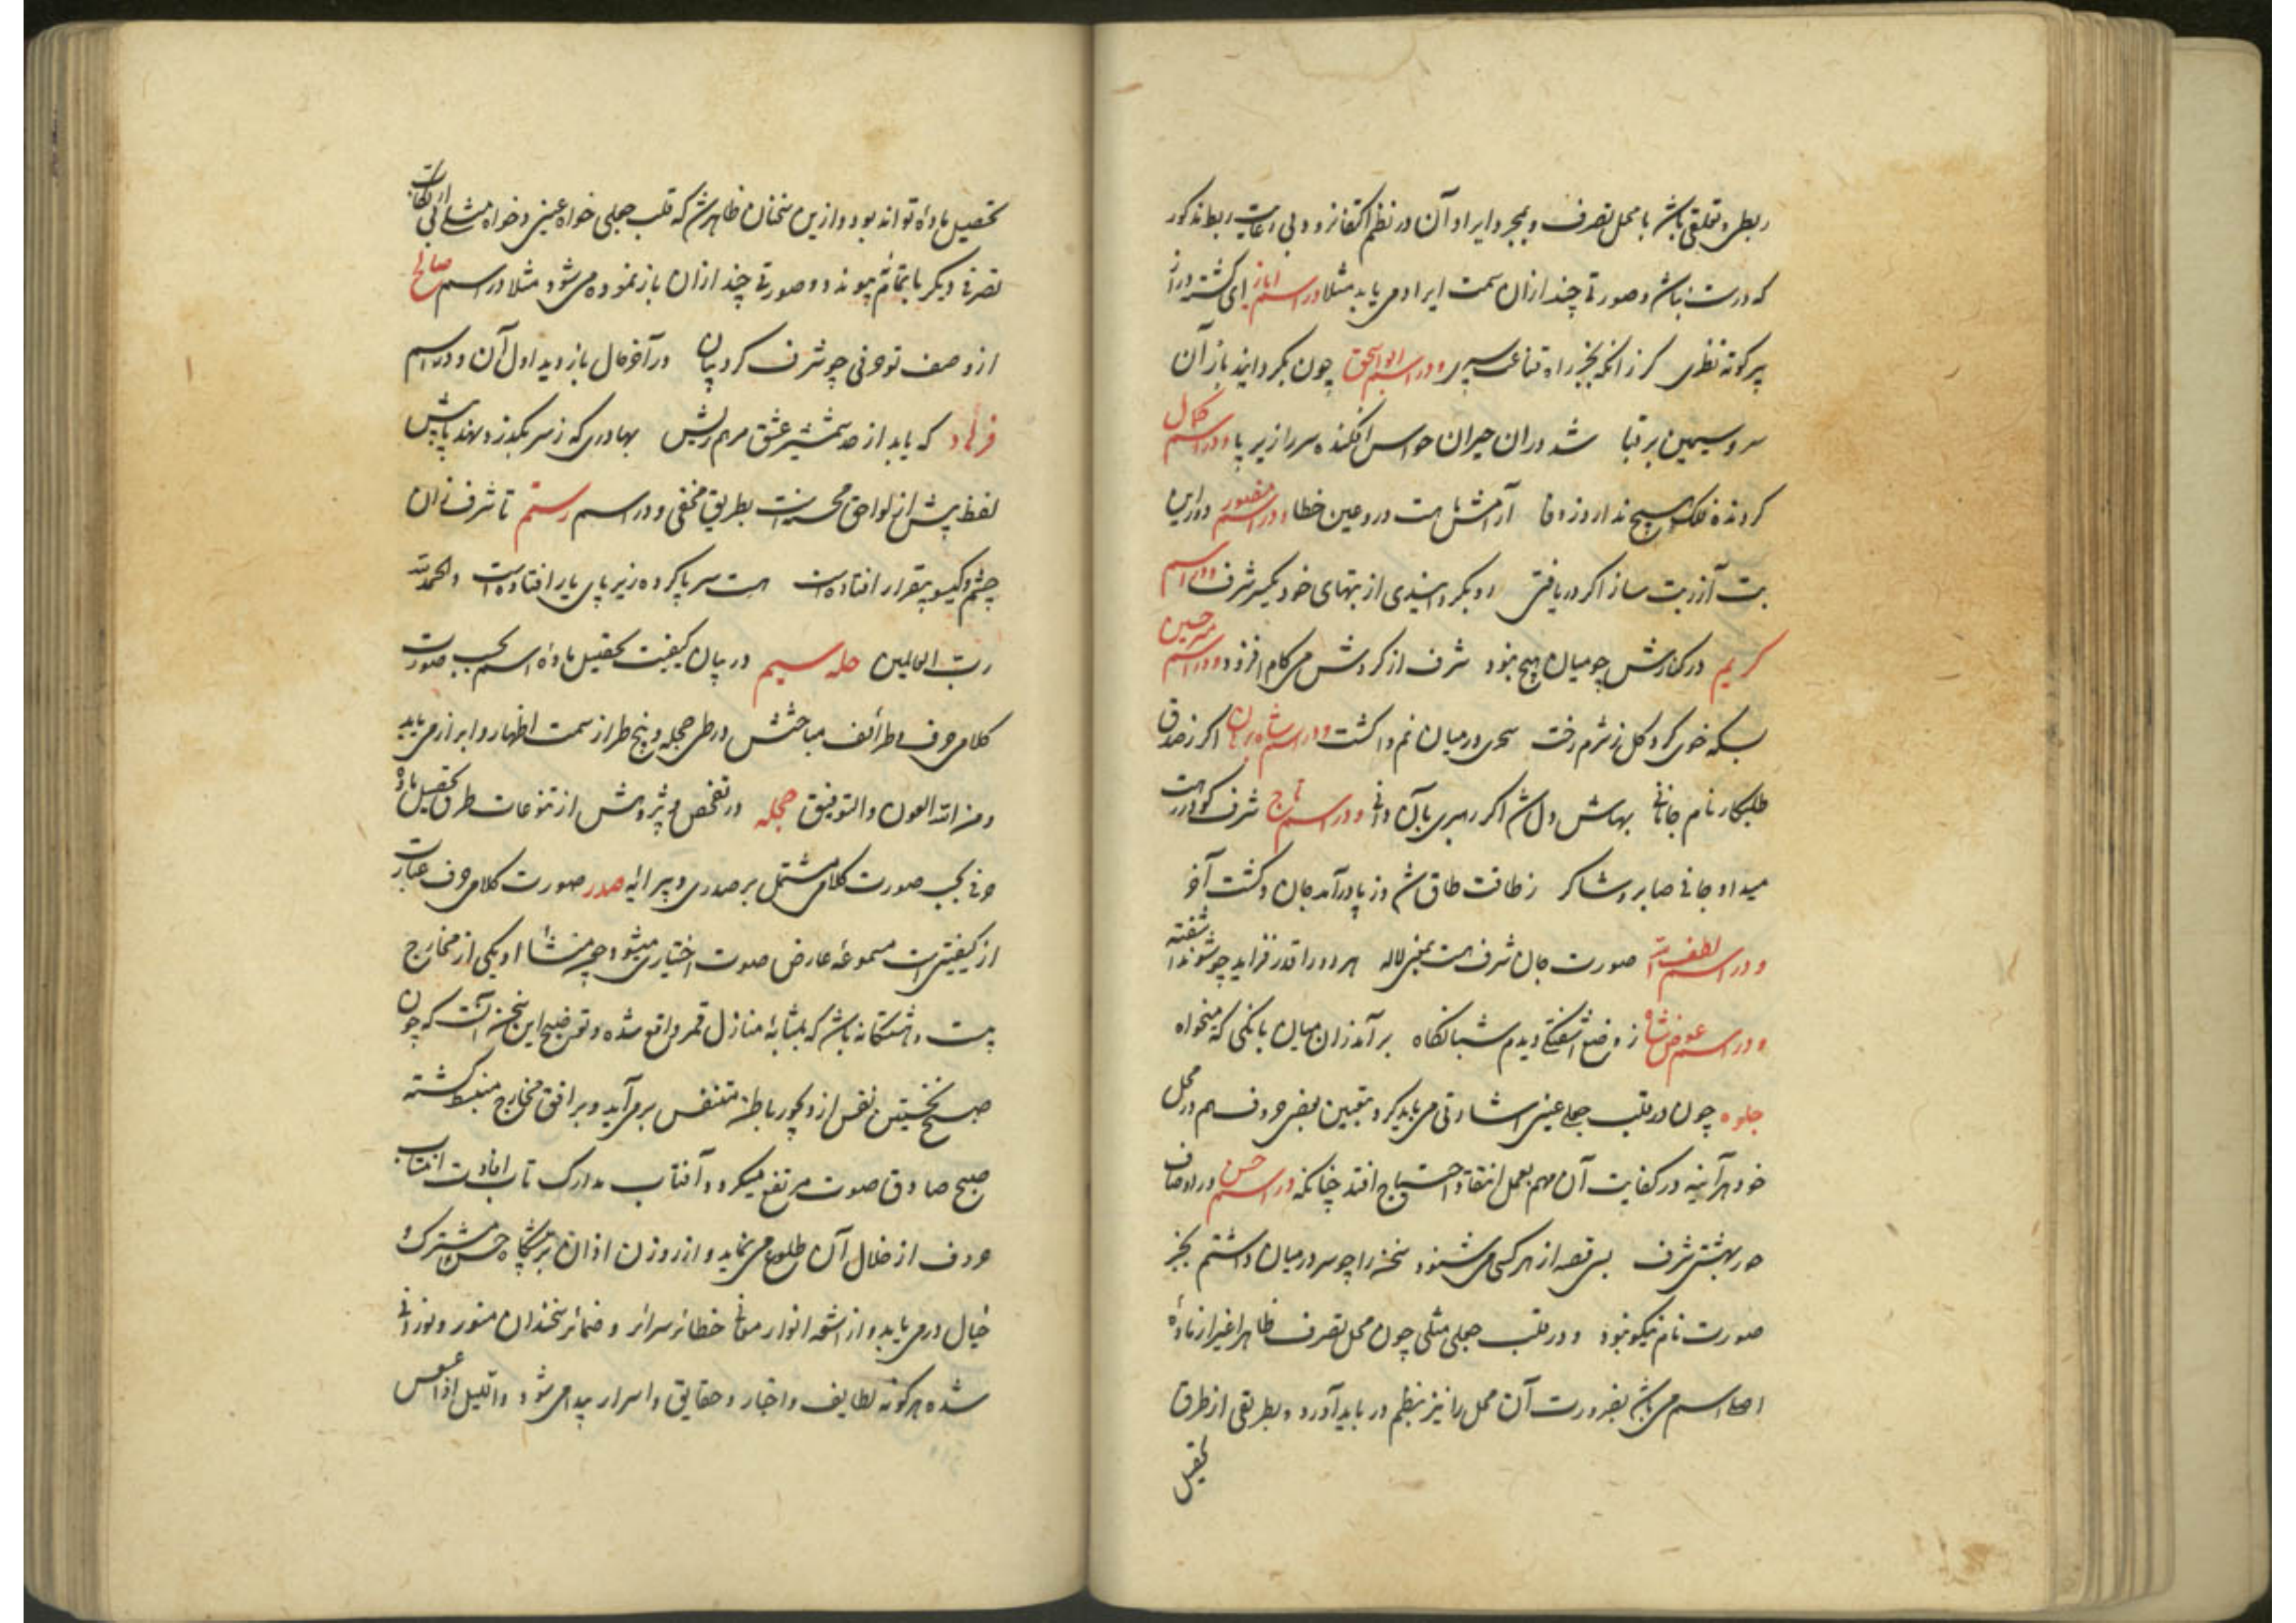 ربطی و تعلقی باشد با محل تصرف و بمجرد ایراد آن در نظم اکتفا نرود و بی رعایت ربط مذکور
که درست نباشد و صورتی چند ازان سمت ایراد می یابد مثلا در اسم ایاز ای گشته دراز
پر کوته نظری کز آنکه بخیر راه قناعت سپری و در اسم ابواسحق چون بگرداند باز آن
سرو سیمین بر قبا شد دران حیران حواس افکنده سر را زیر پا و در اسم کمال
گردنده فلک هیچ ندارد ز وفا آرامش هست درو عین خطا و در اسم منصور در این
بت آزر بت ساز اگر دریافتی رو بگرداندی از بتهای خود یکسر شرف و در اسم
کریم در کنارش چو میان هیچ نبود شرف از گردش می کام افزود و در اسم میر حسین
بسکه خوی کرد گل ز شرم رخت سحری در میان نم واگشت و در اسم شاه برهان اگر ز صدق
طلبکار نام جانانی بهاش دل شد اگر رهبری بآن دانی و در اسم تاج شرف کو در رهت
میداد جانی صابر و شاکر ز طاقت طاق شد وز پا درآمد جان و گشت آخر
و در اسم لطف الله صورت جان شرف هست بمعنی لاله هر دو را قدر فزاید چو شوند آشفته
و در اسم عوض شاه ز وضع آشفتگی دیدم شبانگاه برآمد زان میان بانگی که میخواه
جلوه چون در قلب جعلی عینی اشارتی می باید کرد بتعیین بعضی حروف اسم در محل
خود هر آینه در کفایت آن مهم بعمل انتقاد احتیاج افتد چنانکه در اسم حسن در اوصاف
حور بهشتی شرف بس قصه از هر کسی می شنود سخن را چو سر در میان داشتم بجز
صورت نام نیکو نبود و در قلب جعلی مثلی چون محل تصرف ظاهرا غیر از ماده
اصل اسم می باشد بضرورت آن محل را نیز بنظم در باید آورد و بطریقی از طرق
تحصیل
تحصیل ماده تواند بود و ازین سخنان ظاهر شد که قلب جعلی خواه عینی و خواه مثلی از ارتکاب
تصرفی دیگر باتمام پیوندد و صورتی چند ازان باز نموده می شود مثلا در اسم صالح
از وصف تو حرفی چو شرف کرد بیان در آخر حال باز دید اول آن و در اسم
فرهاد که یابد از صد شمشیر عشق مرهم ریش بهادری که ز سر بگذرد نهند پاپیش
لفظ پیش از لواحق محسنات بطریق مخفی و در اسم رستم تا شرف زان
چشم و گیسو بیقرار افتاده است مست سر پا کرده زیر پای یار افتاده است والحمد لله
رب العالمین حله سیم در بیان کیفیت تحصیل ماده اسم بحسب صورت
کلامی حرف و طرائف مباحثش در طی حجله و پنج طراز سمت اظهار و ابراز می یابد
و من الله العون والتوفیق حجله در تفحص و پژوهش از تنوعات طرق تحصیل ماده
حرفی بحسب صورت کلامی مشتمل بر صدری و پیرایه صدر صورت کلامی حرف عبارت
از کیفیتی است مسموعه عارض صوت اختیاری میشود چو منشأ او یکی از مخارج
بیست و هشتگانه باشد که بمثابه منازل قمر واقع شده و توضیح این سخن آنست که چون
صبح نخستین نفس از دیجور باطن متنفس بر می آید و بر افق مخارج منبسط گشته
صبح صادق صوت مرتفع میگردد و آفتاب مدارک تاب افادت انتساب
حروف از خلال آن طلوع می نماید و از روزن اذان بر مشکاه حس مشترک و
خیال درمی یابد و از اشعه انوار معانی خطایر سرائر و ضمائر سخندان منور و نورانی
شده هر گونه لطایف و اخبار و حقایق و اسرار پیدا می شود واللیل اذا عسعس